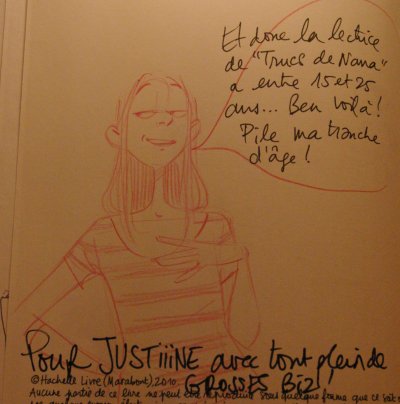 Et donc la lectrice
de "Trucs de Nana"
a entre 15 et 25
ans... Ben voilà!
Pile ma tranche
d'âge!
Pour JUSTiiiNE avec tout plein de
GROSSES BiZ!
© Hachette Livre (Marabout), 2010.
Aucune partie de ce livre ne peut être reproduite sous quelque forme que ce soit